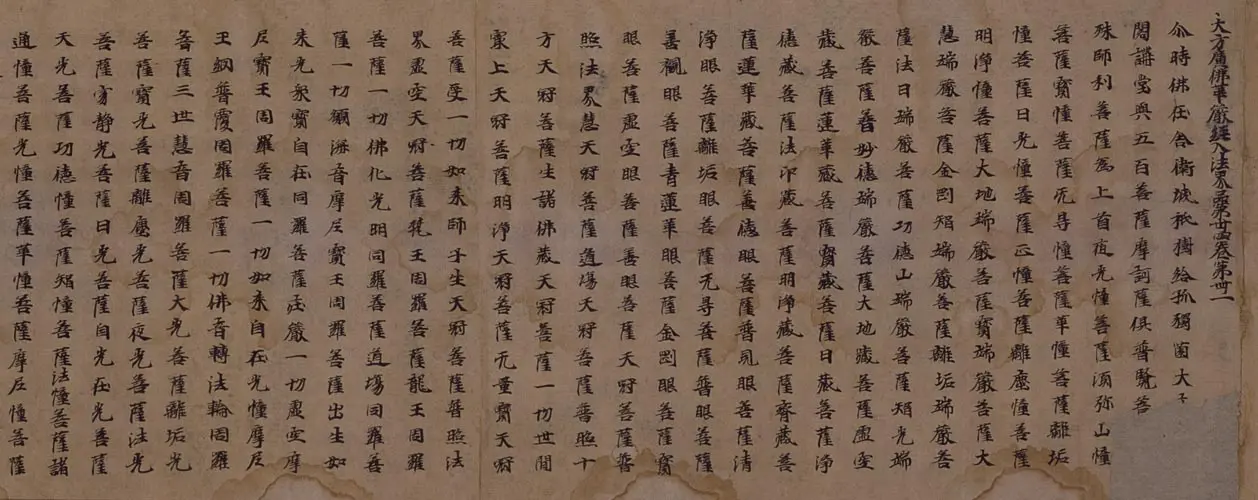 大方廣佛華嚴經入法界品第卅四卷第卌一
尒時佛在舍衛城祇樹給孤獨薗大
閣講堂與五百菩薩摩訶薩俱普賢菩
殊師利菩薩為上首夜光幢菩薩須弥山幢
菩薩寶幢菩薩无㝵幢菩薩華幢菩薩離垢
幢菩薩日光幢菩薩正幢菩薩離塵幢菩薩
明淨幢菩薩大地端嚴菩薩寶端嚴菩薩大
慧端嚴菩薩金剛智端嚴菩薩離垢端嚴菩
薩法日端嚴菩薩功德山端嚴菩薩智光端
嚴菩薩普妙德端嚴菩薩大地藏菩薩虛空
藏菩薩蓮華藏菩薩寶藏菩薩日藏菩薩淨
德藏菩薩法印藏菩薩明淨藏菩薩齊藏菩
薩蓮華藏菩薩善德眼菩薩普見眼菩薩清
淨眼菩薩離垢眼菩薩无㝵菩薩普眼菩薩
善觀眼菩薩青蓮華眼菩薩金剛眼菩薩寶
眼菩薩虛空眼菩薩善眼菩薩天冠菩薩普
照法界慧天冠菩薩道場天冠菩薩普照十
方天冠菩薩生諸佛藏天冠菩薩一切世間
最上天冠菩薩明淨天冠菩薩无量寶天冠
菩薩受一切如來師子坐天冠菩薩普照法
界虛空天冠菩薩梵王周羅菩薩龍王周羅
菩薩一切佛化光明周羅菩薩道場周羅菩
薩一切願海音摩尼寶王周羅菩薩出生如
來光衆寶自在周羅菩薩莊嚴一切虛空摩
尼寶王周羅菩薩一切如來自在光幢摩尼
王網普覆周羅菩薩一切佛音轉法輪周羅
菩薩三世慧音周羅菩薩大光菩薩離垢光
菩薩寶光菩薩離塵光菩薩夜光菩薩法光
菩薩寂靜光菩薩日光菩薩自光在光菩薩
天光菩薩功德幢菩薩智幢菩薩法幢菩薩諸
通幢菩薩光幢菩薩華幢菩薩摩尼幢菩薩